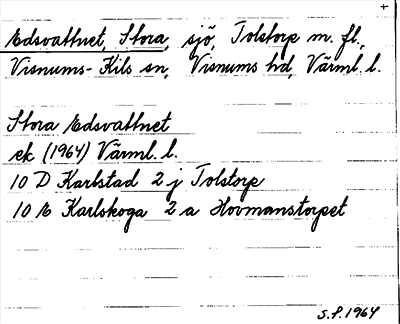 +
Edsvattnet, Stora, sjö, Tolstorp m. fl.,
Visnums-Kils sn, Visnums hd, Värml. l.
Stora Edsvattnet
ek (1964) Värml. l.
10 D Karlstad 2 j Tolstorp
10 E Karlskoga 2 a Hovmanstorpet
S.P. 1964